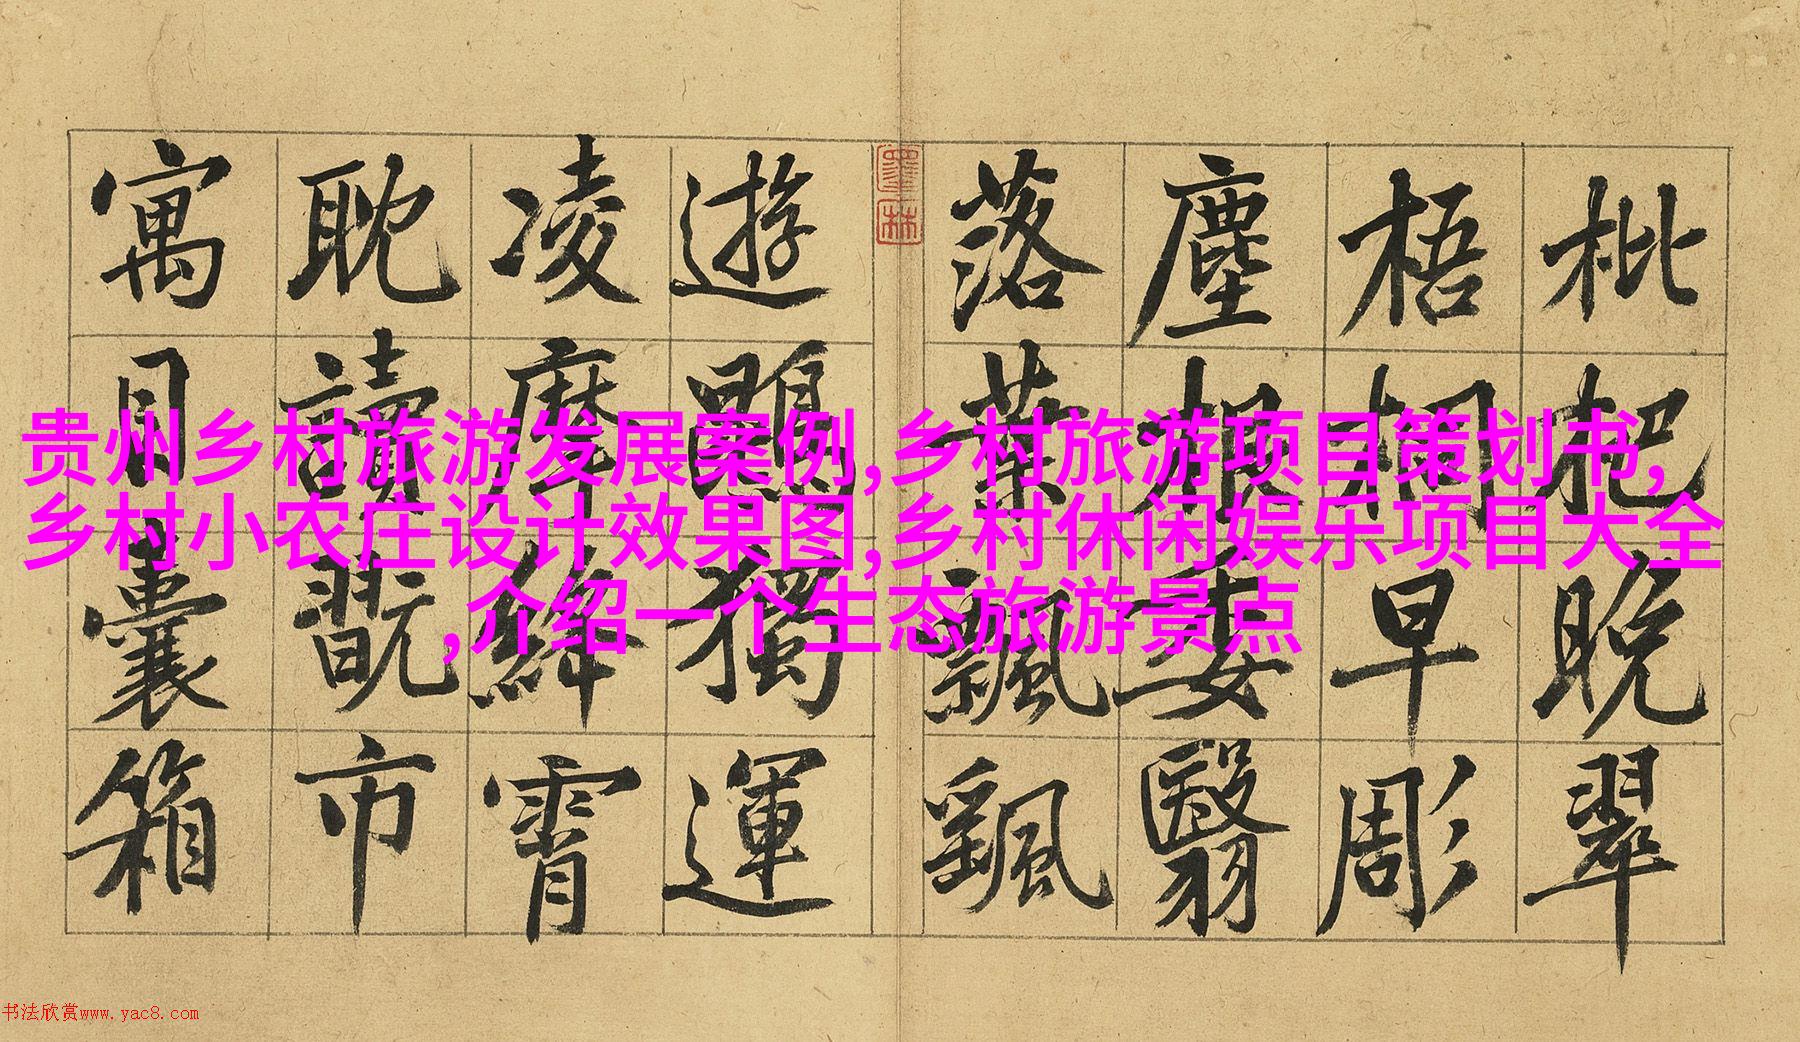 枇杷晚翠
梧桐早彫
塵根委翳
落葉飄颻
遊鵾獨運
凌摩絳霄
耽讀翫市
寓目囊箱
墨林
贵州乡村旅游发展案例,乡村旅游项目策划书,
乡村小农庄设计效果图,乡村休闲娱乐项目大全
,介绍一个生态旅游景点
书法欣赏www.yac8.com